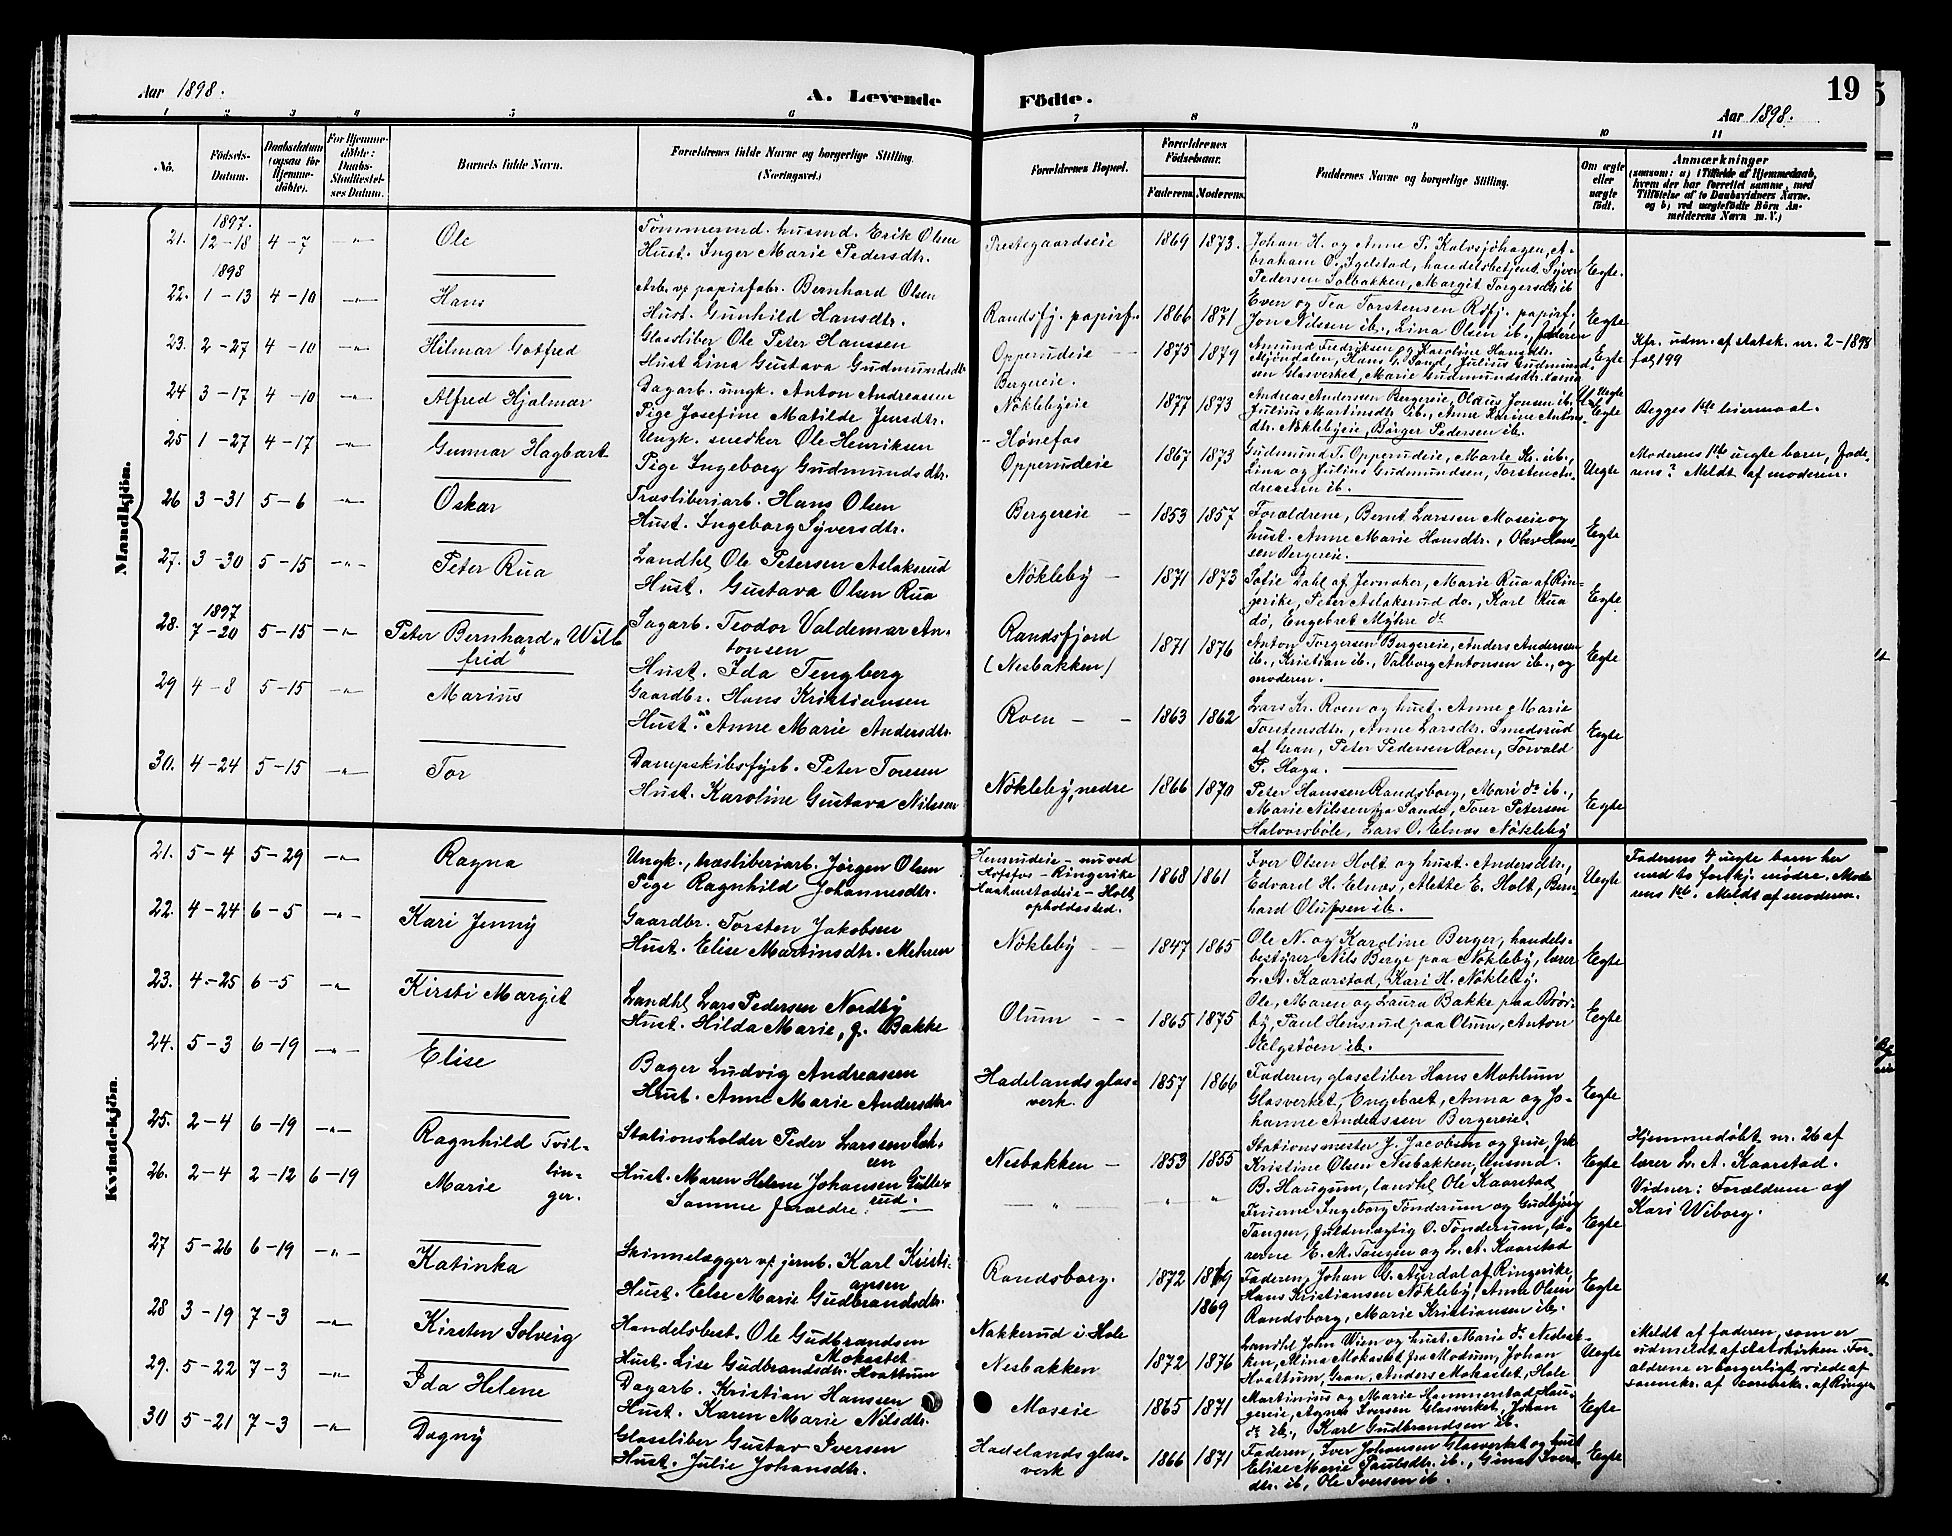 Aar 1898. A. Levende Födte. 19
Aar 1898.
1 2 3 4 5 6 7 8 9 10 11
No. Födsels-Datum. Daabsdatum (ogsaa för Hjemme-döbte). For Hjemme-döbte: Daabs-Stadfæstel-ses Datum. Barnets fulde Navn. Forældrenes fulde Navne og borgerlige Stilling. (Næringsvei.) Forældrenes Bopæl. Forældrenes Födselsaar. Faderens Moderens Faddernes Navne og borgerlige Stilling. Om ægte eller uægte födt. Anmærkninger
(saasom: a) i Tilfælde af Hjemmedaab,
hvem der har forrettet samme, med
Tilföielse af to Daabsvidners Navne.
og b) ved uægtefödte Börn An-
melderens Navn m. V.)
Mandkjön.
21. 1897. 12-18 4-7 -"- Ole
Tömmermd. husmd. Erik Olsen
Hust. Inger Marie Pedersdtr.
Prestegaardseie 1869 1873.
Johan H. og Anne P. Kalvsjöhagen, A-
braham O. Igelstad, handelsbetjent Syver
Pedersen Solbakken, Margit Torgersdtr ib
Egte.
22. 1898 1-13 4-10 -"- Hans
Arb. v. papirfabr. Bernhard Olsen
Hust. Gunhild Hansdtr.
Randsfj. papirf. 1866 1871
Even og Tea Torstensen Rdfj. papirf.
Jon Nilsen ib., Lina Olsen ib., faderen
Egte
23. 2-27 4-10 -"- Hilmar Gotfred
Glassliber Ole Peter Hanssen
Hust Lina Gustava Gudmundsdtr
Opperudeie 1875 1879
Amund Fredriksen og Karoline Hansdtr.
Mjöndalen, Hans G. Sand, Julius Gudmund-
sen Glasverket, Marie Gudmundsdtr. samme
Egte
Kfr. udm. af statsk. nr. 2-1898
fol 199
24 3-17 4-10 -"- Alfred Hjalmar
Dagarb. ungk. Anton Andreasen
Pige Josefine Matilde Jensdtr.
Bergereie.
Nöklebyeie 1877 1873
Andreas Andersen Bergereie, Olaus Jensen ib.
Julius Martinsdtr ib., Anne Karine Antons-
dtr. Nöklebyeie, Börger Pedersen ib.
Uegte
Begges 1ste leiermaal.
25 1-27 4-17 -"- Gunnar Hagbart
Ungk. snedker Ole Henriksen
Pige Ingeborg Gudmundsdtr.
- Hönefos
Opperudeie 1867 1873
Gudmund T. Opperudeie, Marte Kr. ib.,
Lina og Julius Gudmundsen, Torsten An-
dreassen ib.
Uegte
Moderens 1ste uegte barn, fade-
rens? Meldt af moderen.
26 3-31 5-6 -"- Oskar
Træsliberiarb. Hans Olsen
Hust. Ingeborg Syversdtr.
Bergereie - 1853 1857
Forældrene, Bernt Larssen Moseie og
hust. Anne Marie Hansdtr., Olava Hans-
sen Bergereie.
Egte
27. 3-30 5-15 -"- Peter Rua
Landhl Ole Petersen Aslaksrud
Hust. Gustava Olsen Rua
Nökleby - 1871 1873
Sofie Dahl af Jevnaker, Marie Rua af Rin-
gerike, Peter Aslaksrud do., Karl Rua
do, Engebret Myhre do
Egte
28. 1897 7-20 5-15 -"- Peter Bernhard "Wil-
frid"
Sagarb. Teodor Valdemar An-
tonsen
Hust. Ida Tengberg
Randsfjord
(Nesbakken) 1871 1876
Anton Torgersen Bergereie, Anders Anderssen
ib., Kristian ib., Valborg Antonsen ib., og
moderen.
Egte
29 4-8 5-15 -"- Marius
Gaardbr. Hans Kristiansen
Hust. Anne Marie Andersdtr.
Roen - - 1863 1862
Lars Kr. Roen og hust. Anne Marie
Torstensdtr., Anne Larsdtr. Smedsrud
af Gran, Peter Pedersen Roen, Torvald
P. Haga.
Egte
30. 4-24 5-15 -"- Tor
Dampskibsfyrb. Peter Toresen
Hust. Karoline Gustava Nilssen
Nökleby, nedre 1866 1870
Peter Hanssen Randsborg, Mari do ib.,
Marie Nilssen fra Sande, Torer Petersen
Halvorsböle, Lars O. Elnæs Nökleby
Egte
Kvindekjön.
21. 5-4 5-29 -"- Ragna
Ungk., træsliberiarb. Jörgen Olsen
Pige Ragnhild Johannesdtr.
Hensrudeie - nu ved
Hofsfos - Ringerike
Haakenstadeie - Holt
opholdssted. 1868 1861
Iver Olsen Holt og hust. Andersdtr.,
Edvard H. Elnæs, Alette E. Holt, Bern-
hard Olufsen ib.
Uegte
Faderens 4 uegte barn her
med to forskj. mödre. Mode-
rens 1ste. Meldt af moderen.
22. 4-24 6-5 -"- Kari Jenny
Gaardbr. Torsten Jakobsen
Hust. Elise Martinsdtr. Mehren
Nökleby - - 1847 1865
Ole N. og Karoline Berger, handels-
bestyrer Nils Berge paa Nökleby, lærer
L. A. Kaarstad, Kari H. Nökleby.
Egte
23. 4-25 6-5 -"- Kirsti Margit
Landhl Lars Pedersen Nordby
Hust. Hilda Marie, f. Bakke
Olum - - 1865 1875
Ole, Maren og Laura Bakke paa Brör-
by, Paul Hensrud paa Olum, Anton
Elgstöen ib.
Egte
24. 5-3 6-19 -"- Elise
Bager Ludvig Andreasen
Hust. Anne Marie Andersdtr.
Hadelands glas-
verk. 1857 1866
Faderen, glassliber Hans Mohlum
Glasverket, Engebret, Anna og Jo-
hanne Anderssen Bergereie.
Egte
25. 2-4 6-19 -"- Ragnhild Tvil-
Stationsholder Peder Larssen Loh-
ren
Nesbakken - 1853 1855
Stationsmester J. Jacobsen og frue, frk
Kristine Olsen Nesbakken, husmd.
B. Haugum, landhl Ole Kaarstad
Egte
Hjemmedöbt nr. 26 af
lærer L. A. Kaarstad.
Vidner: Forældrene og
Kari Wiborg.
26. 2-4 2-12 6-19 Marie lin-
ger.
Hust. Maren Helene Johansen Gulle-
rud.
Samme forældre
- " - " "
Fruerne Ingeborg Tönderum og Gudbjörg
Tangen, fuldmægtig O. Tönderum, læ-
rerne E. M. Tangen og L. A. Kaarstad
Egte
27 5-26 6-19 -"- Katinka
Skinnelægger v. jernb. Karl Kristi-
ansen
Hust. Else Marie Gudbrandsdtr.
Randsborg. 1872 1869
1869
Faderen, Johan G. Agerdal af Ringerike,
Hans Kristiansen Nökleby, Anne Olsen
Randsborg, Marie Kristiansen ib.
Egte
28 3-19 7-3 -"- Kirsten Solveig
Handelsbest. Ole Gudbrandsen
Mokastet
Hust. Lise Gudbrandsdtr. Hvattum
Nakkerud i Hole
Nesbakken 1872 1876
Landhl John Wien og hust. Marie do Nesbak-
ken, Mina Mokastet fra Modum, Johan
Hvattum, Gran, Anders Mokastet, Hole
Uegte
Meldt af faderen, som er
udmeldt af statskirken. For-
ældrene er borgerligt viede af
sorenskr. af Ringer
29. 5-22 7-3 -"- Ida Helene
Dagarb. Kristian Hanssen
Hust. Karen Marie Nilsdtr.
Moseie 1865 1871
Martinius og Marie Hammerstad Hau-
gereie, Agnes Iversen Glasverket, Johan
do ib., Karl Gudbrandsen ib.
Egte
30 5-21 7-3 -"- Dagny
Glassliber Gustav Iversen
Hust. Julie Johansdtr.
Hadelands glas-
verk 1866 1871
Faderen, Iver Johansen Glasverket og hust
Elise Marie Paulsdtr. ib., Gina Ivers-
dtr. ib, Ole Iversen ib.
Egte